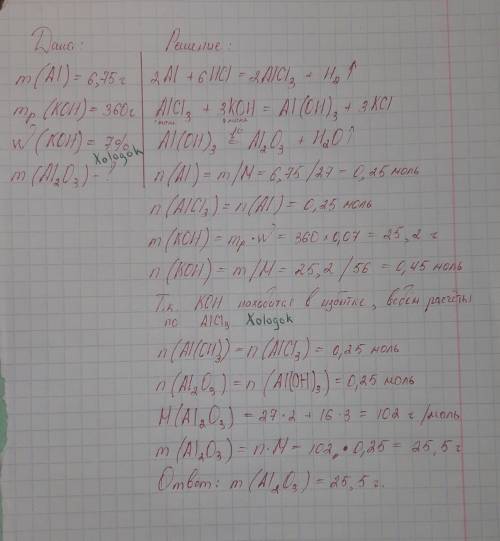 Дано:
m(Al) = 6,75 г
mр.(KOH) = 360 г
W(KOH) = 7%
Xologok
m(Al₂O₃) - ?
Решение:
2Al + 6HCl = 2AlCl₃ + H₂↑
AlCl₃ + 3KOH = Al(OH)₃ + 3KCl
1 моль 3 моль
Al(OH)₃ = Al₂O₃ + H₂O↑
n(Al) = m/M = 6,75/27 = 0,25 моль
n(AlCl₃) = n(Al) = 0,25 моль
m(KOH) = mр · W = 360 × 0,07 = 25,2 г
n(KOH) = m/M = 25,2/56 = 0,45 моль
Т.к. KOH находится в избытке, ведем расчеты
по AlCl₃ Xologok
n(Al(OH)₃) = n(AlCl₃) = 0,25 моль
n(Al₂O₃) = n(Al(OH)₃) = 0,25 моль
M(Al₂O₃) = 27·2 + 16·3 = 102 г/моль
m(Al₂O₃) = n·M = 102 · 0,25 = 25,5 г
Ответ: m(Al₂O₃) = 25,5 г.